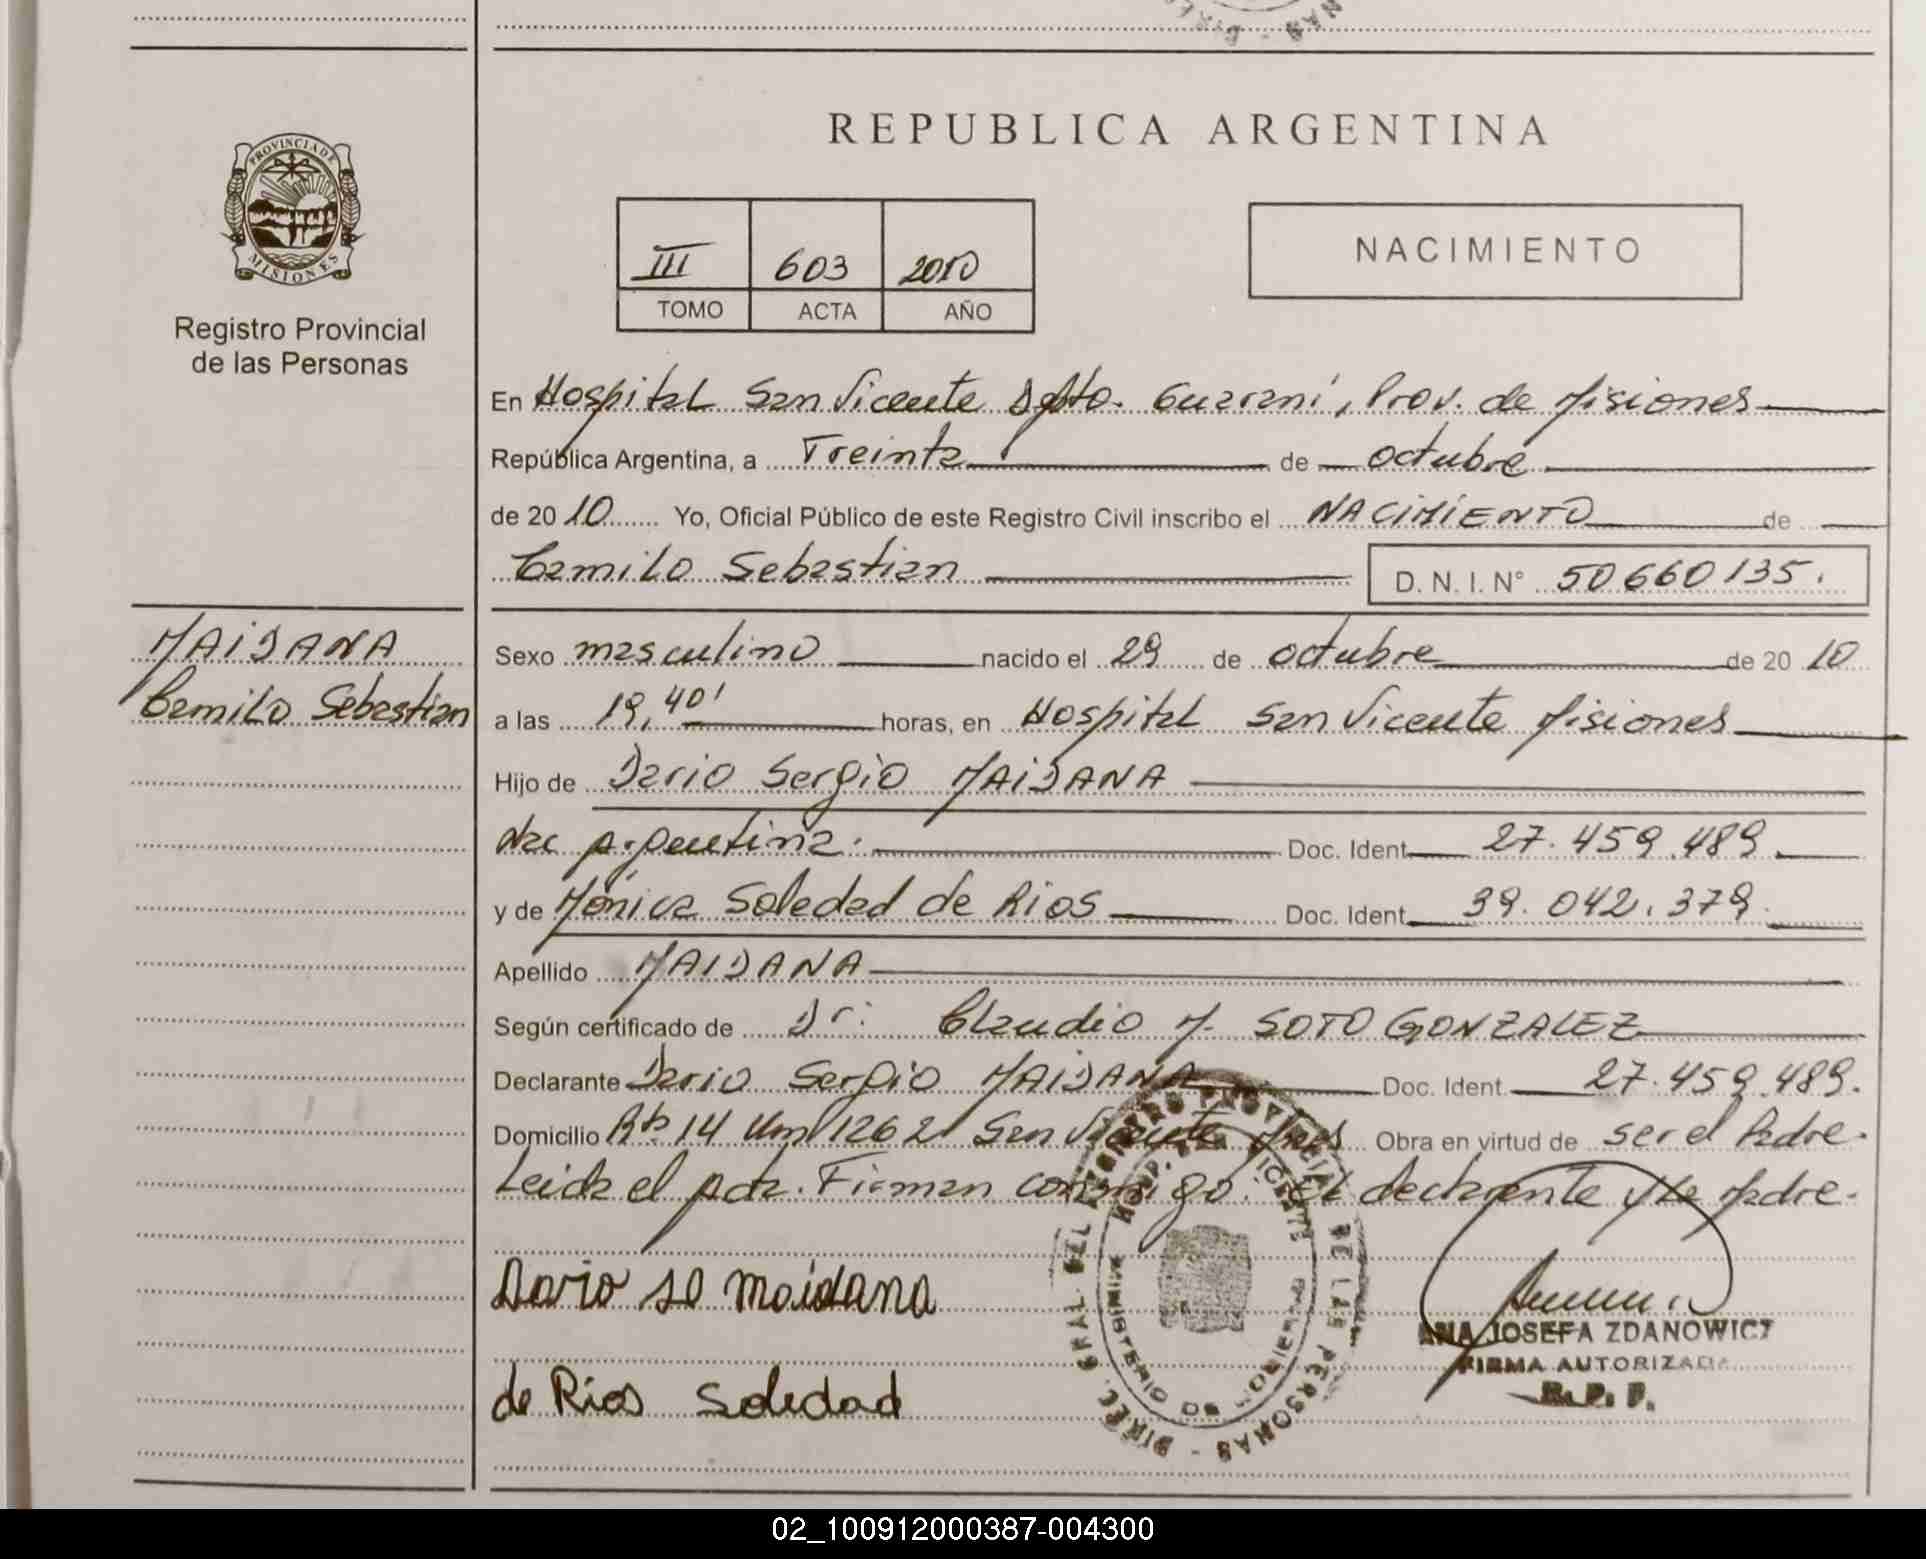 REPUBLICA ARGENTINA
PROVINCIA DE MISIONES
Registro Provincial
de las Personas
III 603 2010
TOMO ACTA AÑO
NACIMIENTO
En Hospital San Vicente Dpto. Guaraní, Prov. de Misiones
República Argentina, a Treinta de octubre
de 20 10 Yo, Oficial Público de este Registro Civil inscribo el NACIMIENTO de
Camilo Sebastian D. N. I. N° 50660135.
MAIDANA
Camilo Sebastian
Sexo masculino nacido el 29 de octubre de 20 10
a las 19,40' horas, en Hospital San Vicente Misiones
Hijo de Dario Sergio MAIDANA
Nac Argentina. Doc. Ident. 27.459.489.
y de Mónica Soledad de Rios Doc. Ident. 39.042.379.
Apellido MAIDANA
Según certificado de Dr: Claudio M. SOTO GONZALEZ
Declarante Dario Sergio MAIDANA Doc. Ident. 27.459.489.
Domicilio Rta 14 Km 1262 San Vicente Mnes Obra en virtud de ser el Padre.
Leida el acta. Firman conmigo: El declarante y la Madre.
Dario se maidana
de Rios Soledad
DIREC. GRAL. DEL REGISTRO PROVINCIAL DE LAS PERSONAS
HOSP. SAN VICENTE
MINISTERIO DE GOBIERNO
ANA JOSEFA ZDANOWICZ
FIRMA AUTORIZADA
R.P.P.
02_100912000387-004300